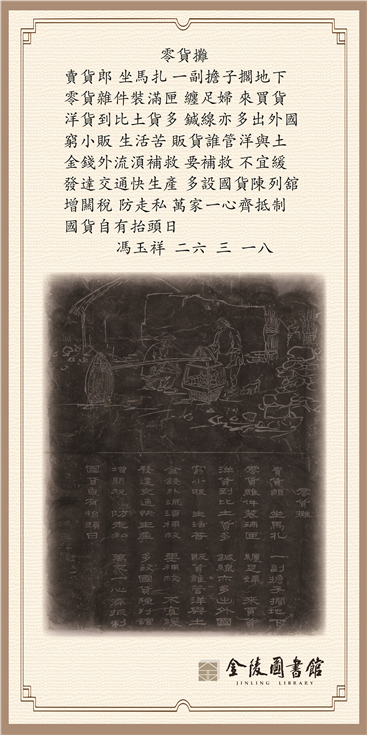 零貨攤
賣貨郎 坐馬扎 一副擔子擱地下
零貨雜件裝滿匣 纏足婦 來買貨
洋貨到比土貨多 鍼線亦多出外國
窮小販 生活苦 販貨誰管洋與土
金錢外流湏補救 要補救 不宜緩
發達交通快生產 多設國貨陳列舘
增關稅 防走私 萬家一心齊抵制
國貨自有抬頭日
馮玉祥 二六 三 一八
零貨攤
賣貨郎 坐馬扎 一副擔子擱地下
零貨雜件裝滿匣 纏足婦 來買貨
洋貨到比土貨多 鍼線亦多出外國
窮小販 生活苦 販貨誰管洋與土
金錢外流湏補救 要補救 不宜緩
發達交通快生產 多設國貨陳列舘
增關稅 防走私 萬家一心齊抵制
國貨自有抬頭日
金陵圖書館
JINLING LIBRARY